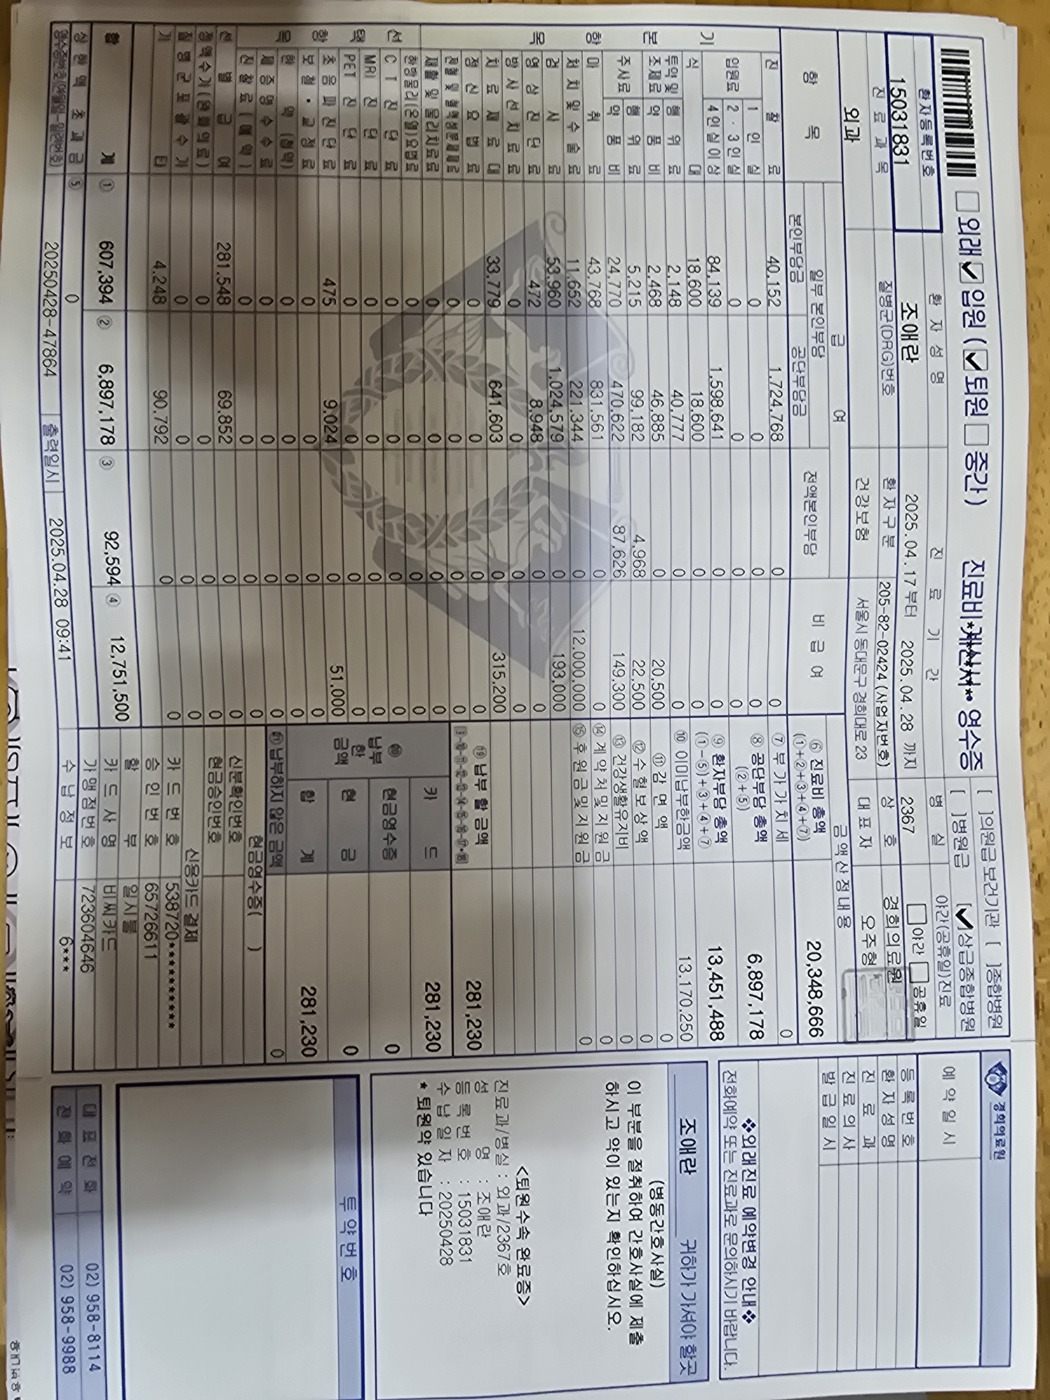 외래 ✔ 입원 ( ✔ 퇴원 중간 ) 진료비 계산서 영수증
[ ]의원급·보건기관 [ ]종합병원
[ ]병원급 [✔]상급종합병원
환자등록번호 환 자 성 명 진 료 기 간 병 실 야간(공휴일)진료
15031831 조애란 2025.04.17부터 2025.04.28 까지 2367 야간 공휴일
진 료 과 목 질병군(DRG)번호 환 자 구 분 205-82-02424 (사업자번호) 상 호 경희의료원
외과 건강보험 서울시 동대문구 경희대로 23 대 표 자 오주형
항 목 급 여 비 급 여 금액 산정내용
일부 본인부담 전액본인부담
본인부담금 공단부담금
진 찰 료 40,152 1,724,768 0 0
입원료 1 인 실 0 0 0 0
2 · 3 인실 0 0 0 0
4 인실 이상 84,139 1,598,641 0 0
식 대 18,600 18,600 0 0
투약및 조제료 행 위 료 2,148 40,777 0 0
약 품 비 2,468 46,885 0 20,500
주사료 행 위 료 5,215 99,182 4,968 22,500
약 품 비 24,770 470,622 87,626 149,300
마 취 료 43,768 831,561 0 0
처 치 및 수 술 료 11,652 221,344 0 12,000,000
검 사 료 53,960 1,024,579 0 193,000
영 상 진 단 료 472 8,948 0 0
방 사 선 치 료 료 0 0 0 0
치 료 재 료 대 33,779 641,603 0 315,200
정 신 요 법 료 0 0 0 0
재활 및 물리치료료 0 0 0 0
C T 진 단 료 0 0 0 0
MRI 진 단 료 0 0 0 0
PET 진 단 료 0 0 0 0
초 음 파 진 단 료 475 9,024 0 51,000
보 철 · 교 정 료 0 0 0 0
제 증 명 수 수 료 0 0 0 0
선 별 급 여 281,548 69,852 0 0
기 타 4,248 90,792 0 0
합 계 ① 607,394 ② 6,897,178 ③ 92,594 ④ 12,751,500
상 한 액 초 과 금 ⑤ 0
20250428-47864 출력일시 2025.04.28 09:41
⑥ 진료비 총액 (①+②+③+④+⑦) 20,348,666
⑦ 부 가 가 치 세 0
⑧ 공단부담 총액 (②+⑤) 6,897,178
⑨ 환자부담 총액 (①-⑤)+③+④+⑦ 13,451,488
⑩ 이미납부한금액 13,170,250
⑪ 감 면 액 0
⑫ 수 혈 보 상 액 0
⑬ 건강생활유지비 0
⑭ 계 약 처 및 지 원 금 0
⑮ 후 원 금 및 지 원 금 0
납부 할 금액 281,230
납부한 금액 카 드 281,230
현금영수증 0
현 금 0
합 계 281,230
납부하지 않은 금액 0
현금영수증( )
신분확인번호
현금승인번호
신용카드 결제
카 드 번 호 538720**********
승 인 번 호 65726611
할 부 일시불
카 드 사 명 비씨카드
가 맹 점 번 호 723604646
수 납 정 보 6***
경희의료원
예 약 일 시
등 록 번 호
환 자 성 명
진 료 과
진 료 의 사
발 급 일 시
❖외래진료 예약변경 안내❖
전화예약 또는 진료과로 문의하시기 바랍니다.
조애란 귀하가 가셔야 할 곳
(병동간호사실)
이 부분을 절취하여 간호사실에 제출
하시고 약이 있는지 확인하십시오.
<퇴원수속 완료증>
진료과/병실 : 외과/2367호
성 명 : 조애란
등 록 번 호 : 15031831
수 납 일 자 : 20250428
* 퇴원약 있습니다
투 약 번 호
대 표 전 화 02) 958-8114
전 화 예 약 02) 958-9988